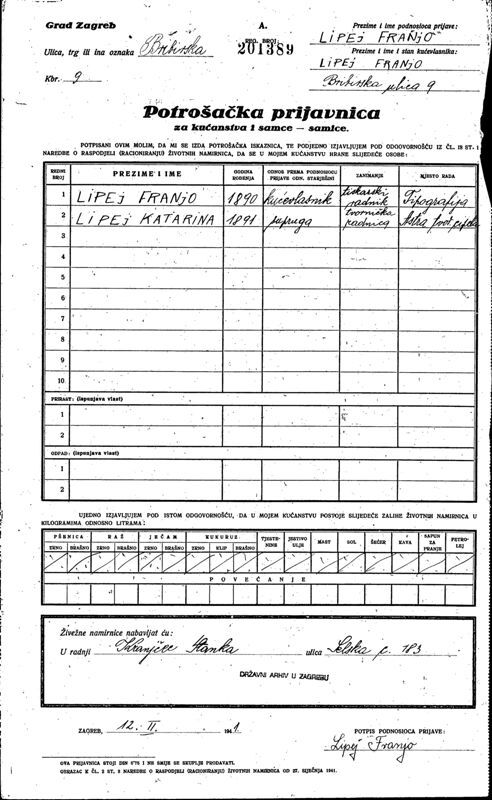 Grad Zagreb
A.
Prezime i ime podnosioca prijave:
LIPEJ FRANJO
Ulica, trg ili ina oznaka Bribirska
REG. BROJ:
201389
Prezime i ime i stan kućevlasnika:
LIPEJ FRANJO
Kbr. 9
Bribirska ulica 9
Potrošačka prijavnica
za kućanstva i samce — samice.
POTPISANI OVIM MOLIM, DA MI SE IZDA POTROŠAČKA ISKAZNICA, TE PODJEDNO IZJAVLJUJEM POD ODGOVORNOŠĆU IZ ČL. 18 ST. 1
NAREDBE O RASPODJELI (RACIONIRANJU) ŽIVOTNIH NAMIRNICA, DA SE U MOJEM KUĆANSTVU HRANE SLIJEDEĆE OSOBE:
REDNI BROJ PREZIME I IME GODINA ROĐENJA ODNOS PREMA PODNOSIOCU PRIJAVE ODN. STARJEŠINI ZANIMANJE MJESTO RADA
1 LIPEJ FRANJO 1890 kućevlasnik tiskarski radnik Tipografija
2 LIPEJ KATARINA 1891 supruga tvornička radnica Astra
3
4
5
6
7
8
9
10
PRIRAST: (ispunjava vlast)
1
2
OTPAD: (ispunjava vlast)
1
2
UJEDNO IZJAVLJUJEM POD ISTOM ODGOVORNOŠĆU, DA U MOJEM KUĆANSTVU POSTOJE SLIJEDEĆE ZALIHE ŽIVOTNIH NAMIRNICA U
KILOGRAMIMA ODNOSNO LITRAMA:
PŠENICA RAŽ JEČAM KUKURUZ TJESTENINE JESTIVO ULJE MAST SOL ŠEĆER KAVA SAPUN ZA PRANJE PETROLEJ
ZRNO BRAŠNO ZRNO BRAŠNO ZRNO BRAŠNO ZRNO KLIP BRAŠNO
POVEĆANJE
Živežne namirnice nabavljat ću:
U radnji Kranjčec Stanka ulica Selska c. 183
DRŽAVNI ARHIV U ZAGREBU
ZAGREB, 12. II. 1941
POTPIS PODNOSIOCA PRIJAVE:
Lipej Franjo
OVA PRIJAVNICA STOJI DIN 0'75 I NE SMIJE SE SKUPLJE PRODAVATI.
OBRAZAC K ČL. 2 ST. 2 NAREDBE O RASPODJELI (RACIONIRANJU) ŽIVOTNIH NAMIRNICA OD 27. SIJEČNJA 1941.